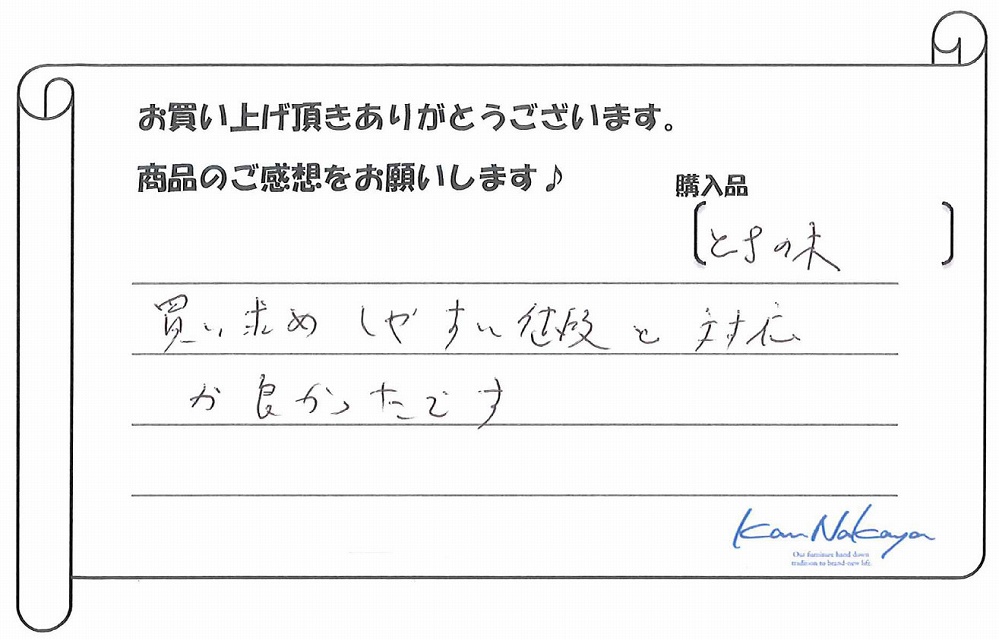 お買い上げ頂きありがとうございます。
商品のご感想をお願いします♪
購入品
ときの木
買い求めしやすい値段と対応
が良かったです
Kan Nakaya
Our furnitures hand down
tradition to brand-new life.